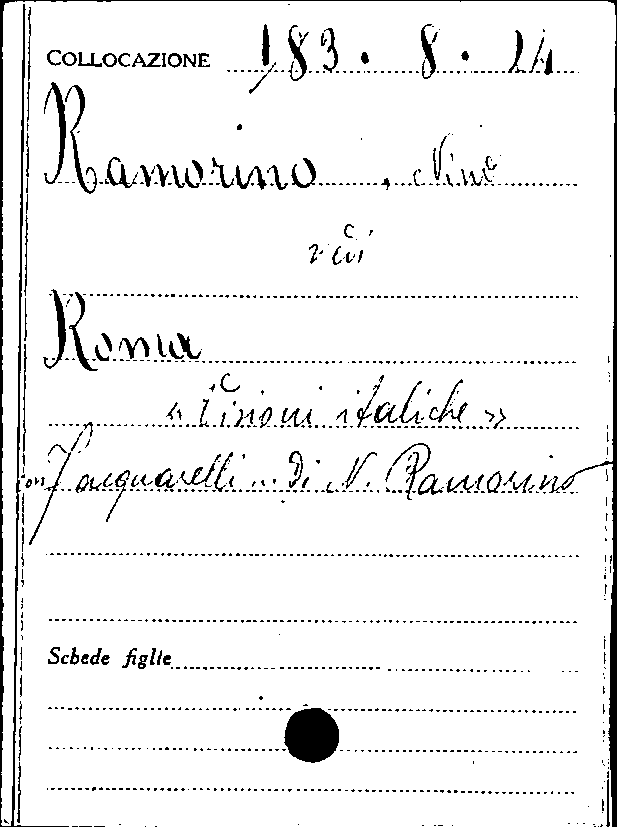 COLLOCAZIONE 183. 8. 24
Ramorino, Nino
vedi
Roma
« Visioni italiche »
con acquarelli... di N. Ramorino
Schede figlie